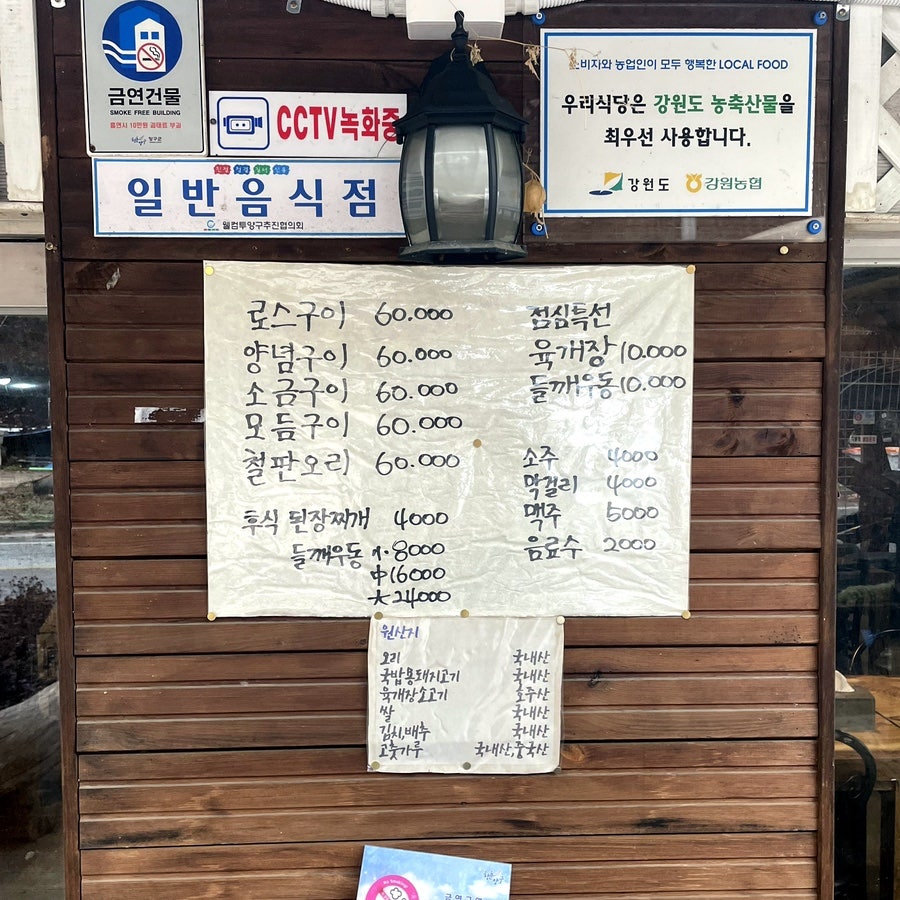 금연건물
SMOKE FREE BUILDING
흡연시 10만원 과태료 부과
CCTV녹화중
일반음식점
웰컴투양구추진협의회
소비자와 농업인이 모두 행복한 LOCAL FOOD
우리식당은 강원도 농축산물을
최우선 사용합니다.
강원도 강원농협
로스구이 60.000
양념구이 60.000
소금구이 60.000
모듬구이 60.000
철판오리 60.000
후식 된장찌개 4000
들깨우동 小.8000
中16000
大24000
점심특선
육개장 10.000
들깨우동 10.000
소주 4000
막걸리 4000
맥주 5000
음료수 2000
원산지
오리 국내산
국밥용돼지고기 국내산
육개장소고기 호주산
쌀 국내산
김치,배추 국내산
고춧가루 국내산,중국산